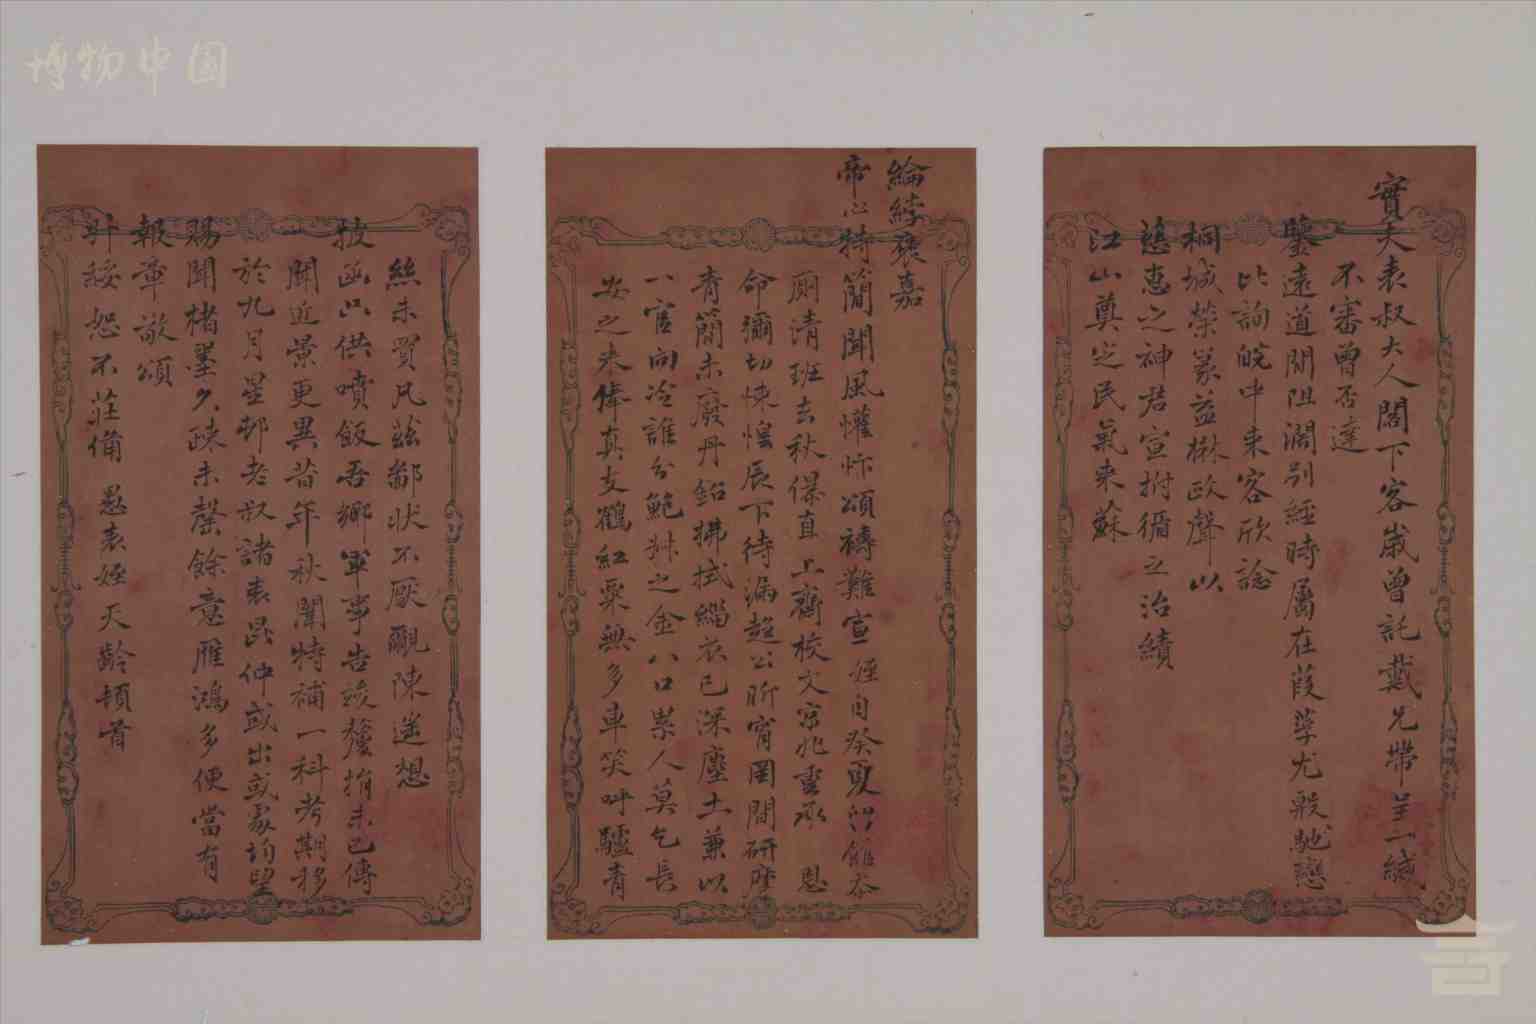 博物中国
寶夫表叔大人閣下客歲曾託戴兄帶呈一緘
不審曾否達
鑒遠道閒阻濶別經時屬在葭莩尤殷馳戀
比詢皖中來客欣諗
桐城榮篆益楙歐聲以
慈惠之神君宣拊循之治績
江山奠定民氣來蘇
綸綍褒嘉
帝心特簡聞風懽忭頌禱難宣姪自癸夏
廁清班去秋保直上齋校文宗 承恩
命彌切悚惶辰下待漏趨公昕宵罔間研
青簡未廢丹鉛拂拭緇衣已深塵土兼以
一官向冷誰分鮑叔之金八口累人莫乞長
安之米俸真支鶴紅粟無多車笑呼驢青
絲未買凡茲鄙狀不厭覼陳遙想
披函只供噴飯吾鄉軍事告竣釐捐未已傳
聞近景更異昔年秋闈特補一科考期移
於九月星邨老叔諸表昆仲或出或處均望
賜聞楮墨久疎未罄餘意雁鴻多便當有
報章敬頌
升綏恕不莊備 愚表姪天齡頓首